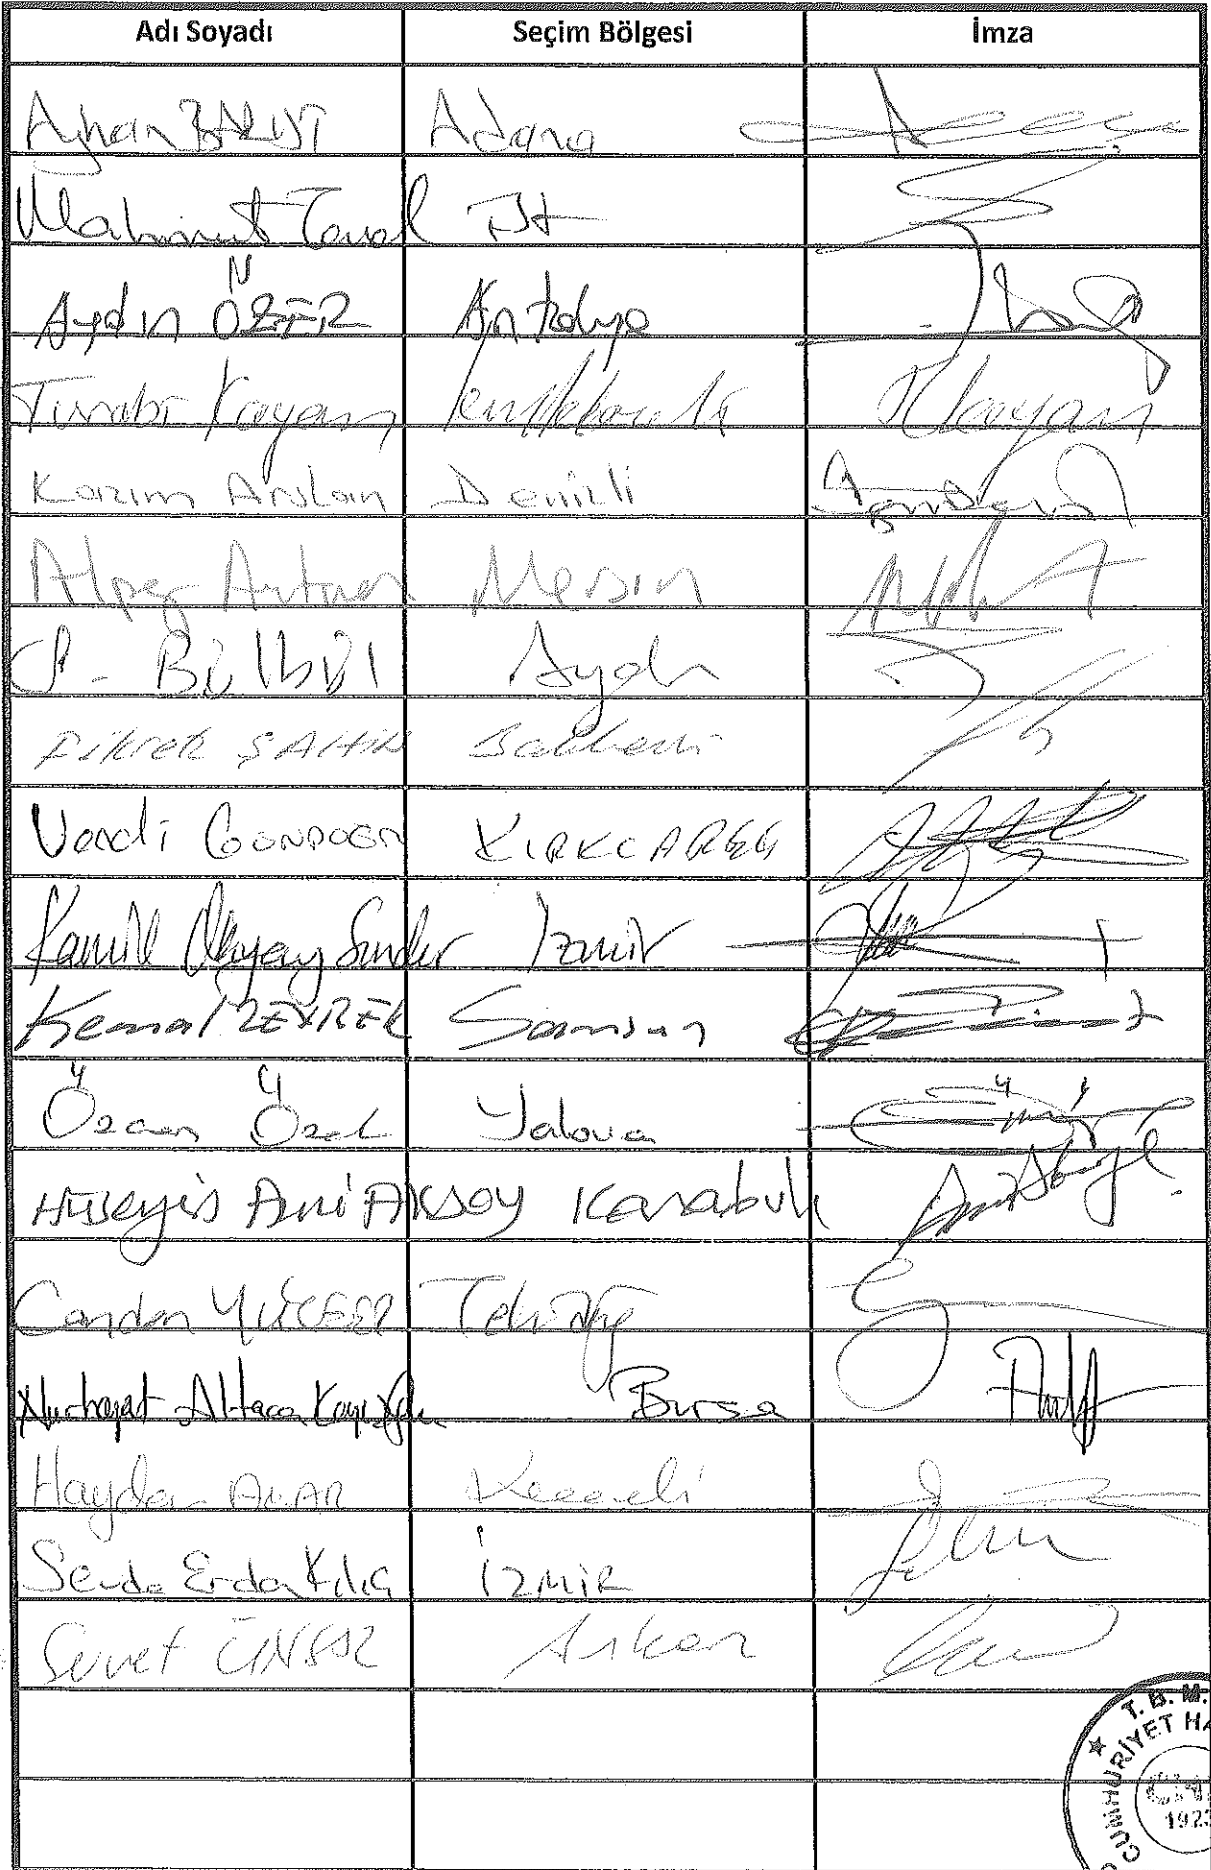 Adı Soyadı Seçim Bölgesi İmza
Ayhan BARUT Adana
Mahmut Tanal İst
Aydın ÖZER Antalya
Turabi Kayan Kırklareli
Kazım Arslan Denizli
Alpay Antmen Mersin
S. Bülbül Aydın
Fikret ŞAHİN Balıkesir
Vecdi GÜNDOĞDU KIRKLARELİ
Kamil Okyay Sındır İzmir
Kemal ZEYBEK Samsun
Özcan Özel Yalova
Hüseyin Avni AKSOY Karabük
Candan YÜCEER Tekirdağ
Nurhayat Altaca Kayışoğlu Bursa
Haydar AKAR Kocaeli
Sevda Erdan Kılıç İZMİR
Servet ÜNSAL Ankara
T. B. M.
CUMHURİYET HA
1923